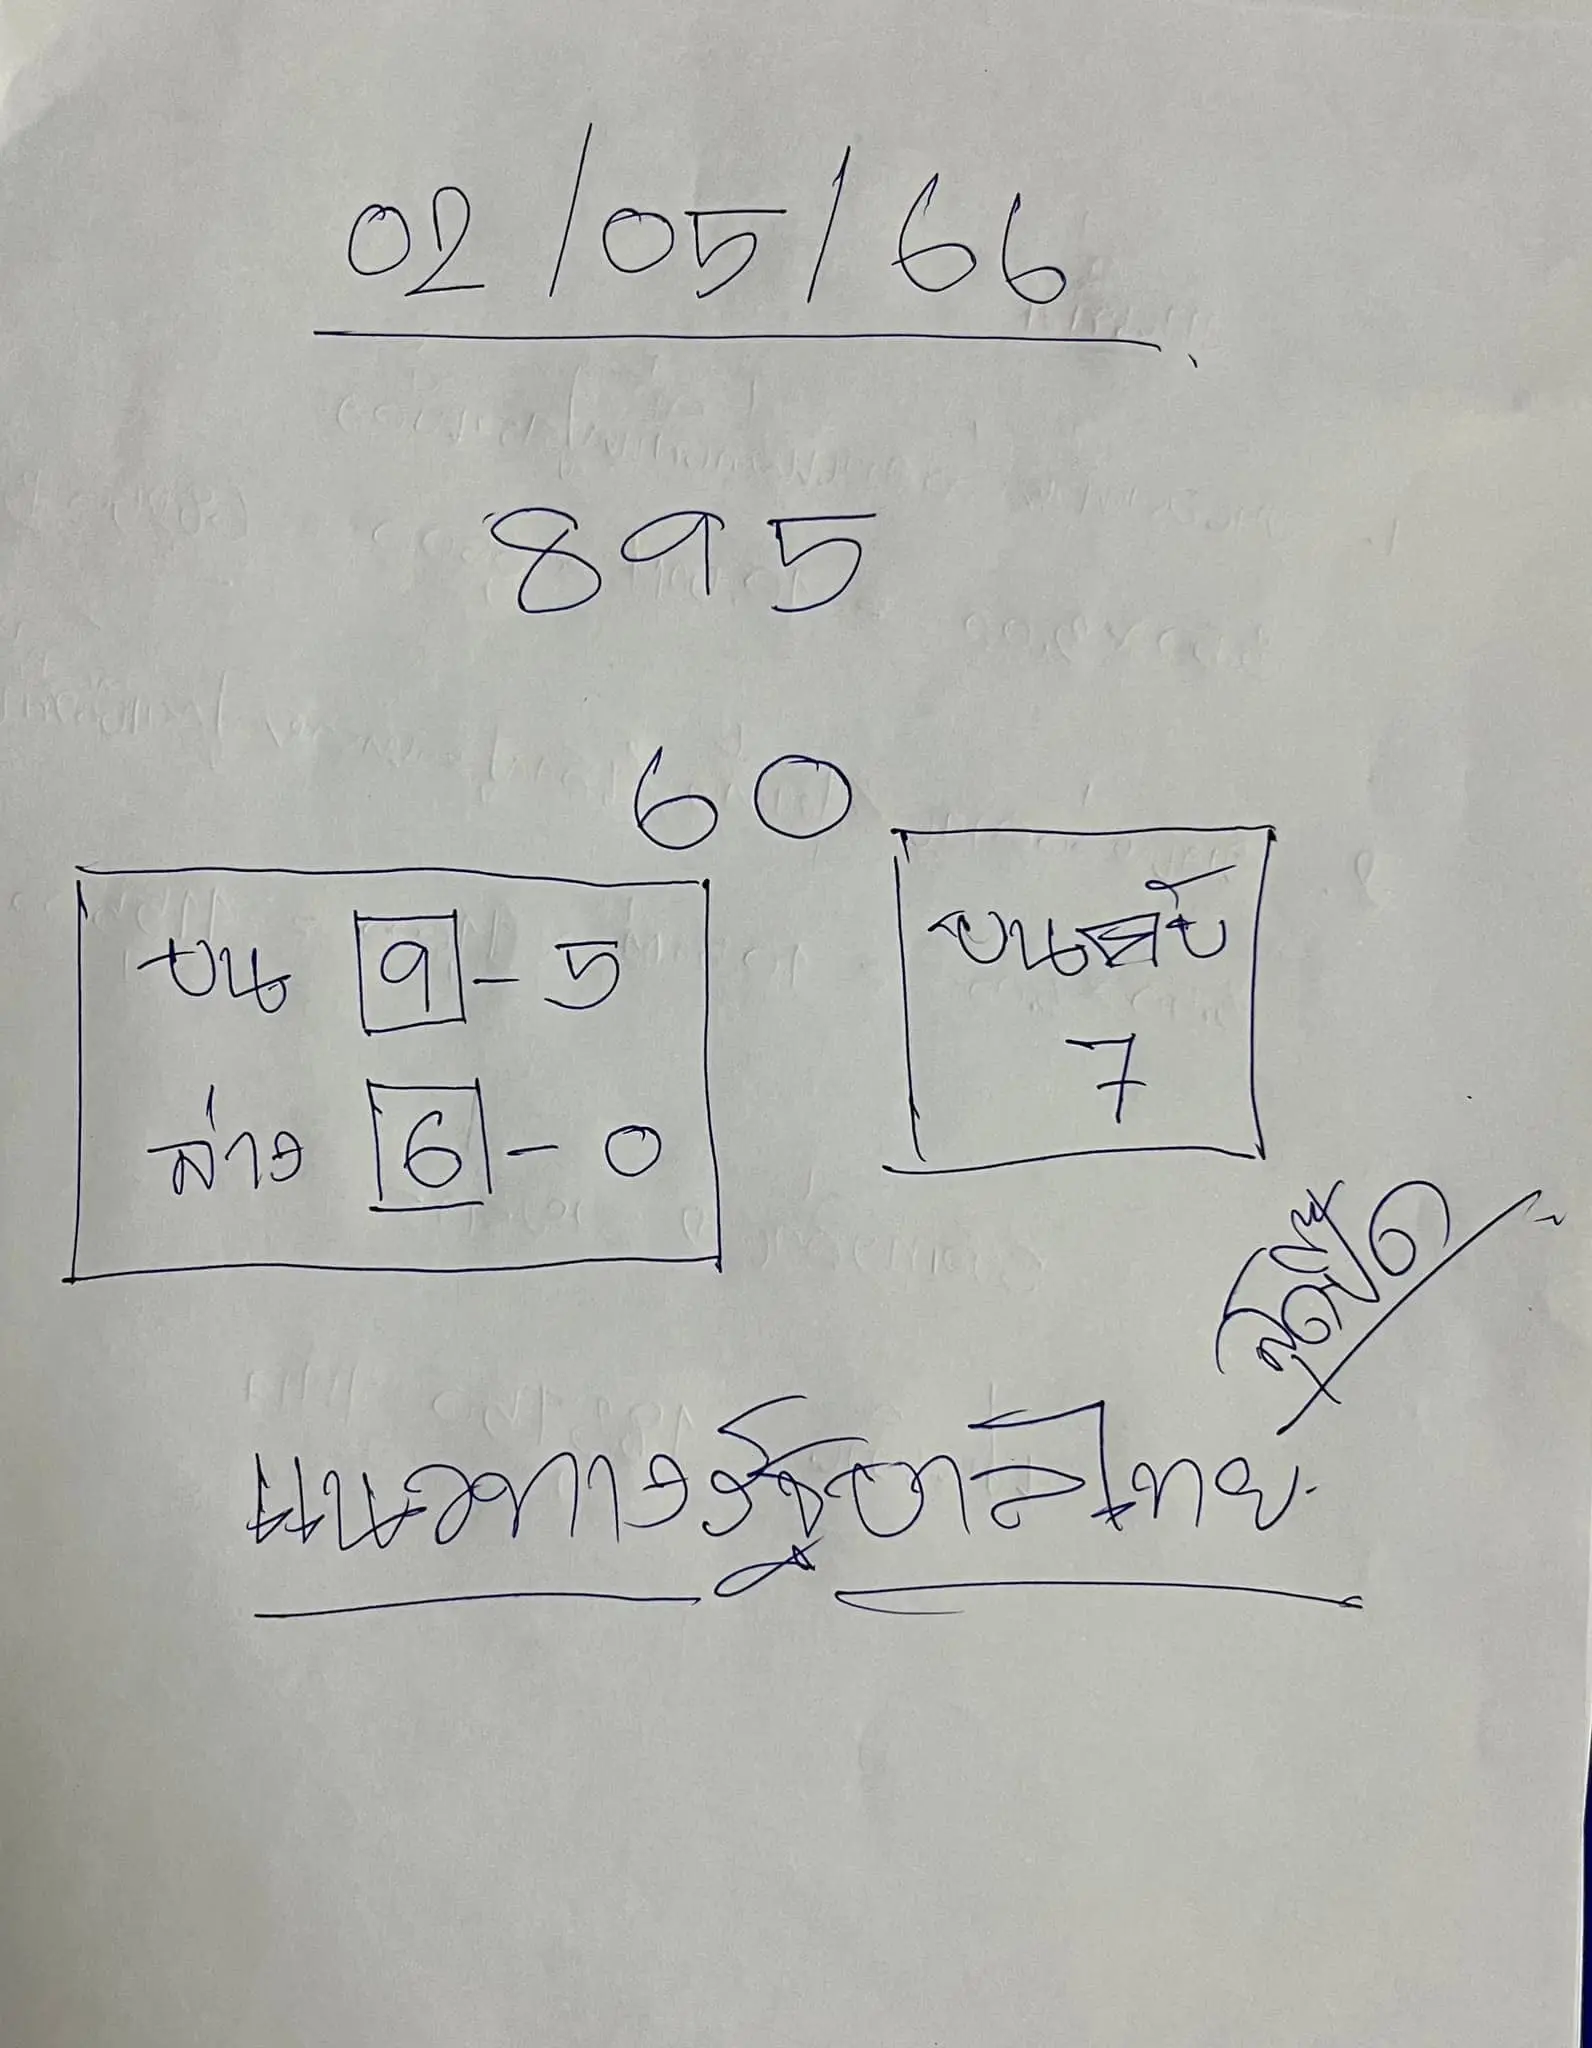 02/05/66
895
60
บน 9-5
ล่าง 6-0
บนดับ
7
แนวทางรัฐบาลไทย